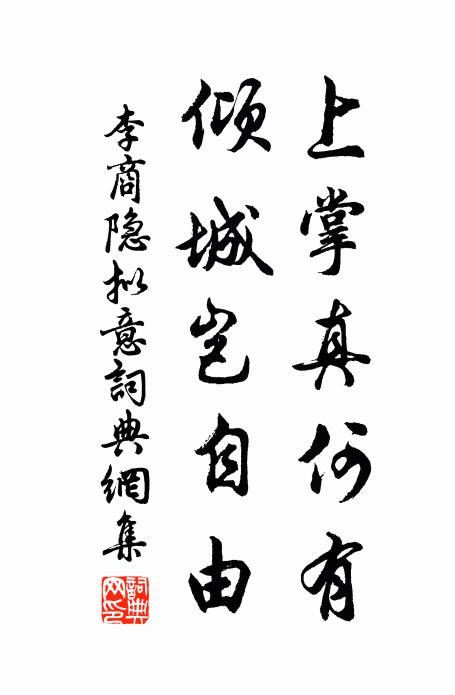 上掌真何有
倾城岂自由
李商隐拟意詞典網集
詞典
网印